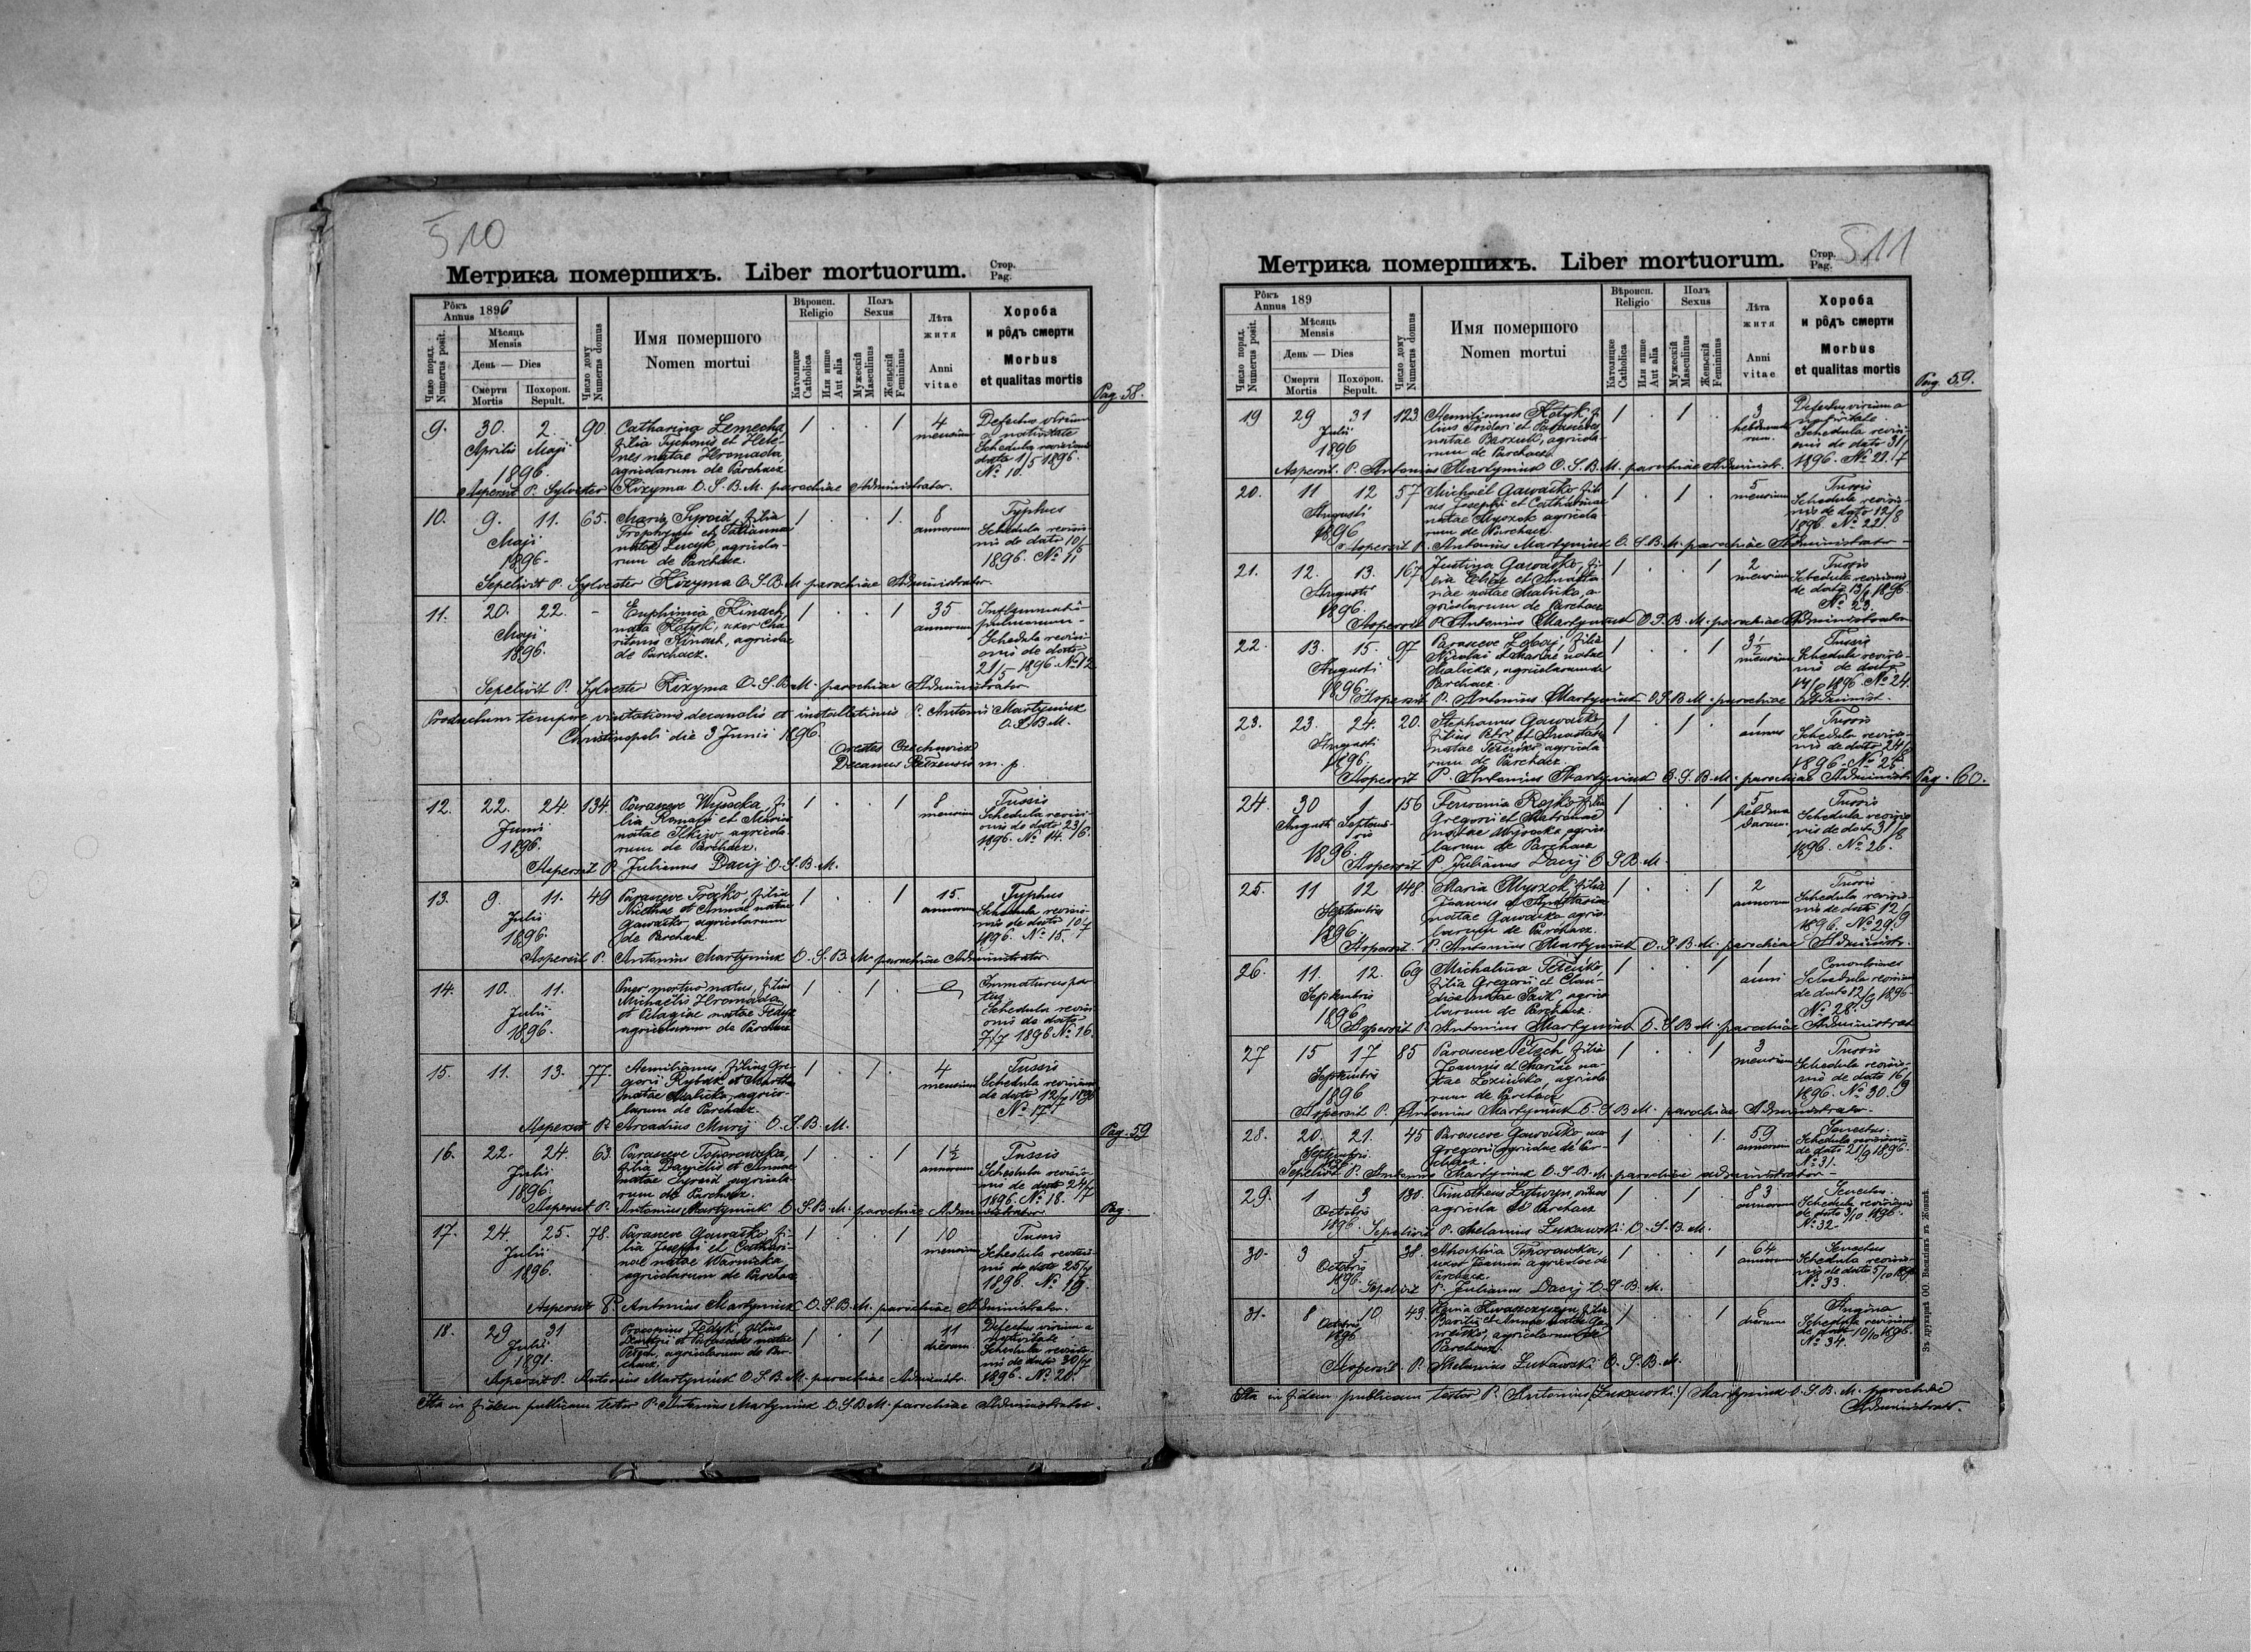 510
Метрика помершихъ. Liber mortuorum.
Стор.
Pag.
Рôкъ
Annus 1896
Мѣсяць
Mensis
День — Dies
Число поряд.
Numerus posit.
Смерти
Mortis
Похорон.
Sepult.
Число дому
Numerus domus
Имя помершого
Nomen mortui
Вѣроисп.
Religio
Католицке
Catholica
Или инше
Aut alia
Полъ
Sexus
Мужескій
Masculinus
Женьскій
Femininus
Лѣта
житя
Anni
vitae
Хороба
и рôдъ смерти
Morbus
et qualitas mortis
Pag. 58.
9. 30. 2. 90. Catharina Lemecha 1 . . 1 4 Defectus virium
filia Tychonis et Hele- mensium a nativitate
Aprilis Maji nes natae Hromada, Schedula revisionis
agricolarum de Parchacz dato 1/5 1896.
1896. No 10.
Aspersit P. Sylvester Kizyma O. S. B. M. parochiae Administrator.
10. 9. 11. 65. Maria Syroid filia 1 . . 1. 8 Typhus
Maji annorum Schedula revisio-
natae Lucyk, agricola- nis de dato 10/5
1896. rum de Parchacz. 1896. No 11
Sepelivit P. Sylvester Kizyma O. S. B. M parochiae Administrator.
11. 20. 22. - Euphimia Kinach, 1 . . 1 35
nata Kotyk, uxor Cha- annorum pulmonum-
Maji ritonis Kinach, agricolae Schedula revisi-
1896. de Parchacz. onis de dato
21/5 1896. No 12
Sepelivit P. Sylvester Kizyma O. S. B. M. parochiae Administrator
Productum tempore visitationis decanalis et installationis P. Antonii Martyniuk
O. S. B. M.
Christinopoli die 3 Junii 1896.
Orestes Czechowicz
Decanus Belzensis m. p.
12. 22. 24. 134. Parasceve Wysocka, fi- 1 . . 1 8 Tussis
lia Romani et Maria mensium Schedula revisi-
Junii natae Ilkiw, agricola- onis de dato 23/6
1896. rum de Parchacz. 1896. No 14.
Aspersit P. Julianus Dacij O. S. B. M.
13. 9. 11. 49 Parasceve Frojko, filia 1 . . 1 15. Typhus
Nicetae et Annae natae annorum Schedula revisio-
Julii Gawaśko, agricolarum nis de dato 10/7
1896. de Parchacz. 1896. No 15.
Aspersit P. Antonius Martyniuk O. S. B. M parochiae Administrator
14. 10. 11. Puer mortuo natus, filius 1 . 1 . Immaturus par-
Michaëlis Hromada tus
Julii et Pelagiae natae Fedyk Schedula revisi-
1896. agricolarum de Parchacz onis de dato
7/7 1896 No 16.
15. 11. 13. 77. Aemilianus, filius Gre- 1 . 1. 4 Tussis
gorii Rybak et Martha mensium Schedula revisionis
natae Malicka, agrico- de dato 12/7 1896
larum de Parchacz. No 17
Aspersit P. Arcadius Murij O. S. B. M.
Pag. 59
16. 22. 24. 63. Parasceve Toporowska, 1 . . 1 1½ Tussis
filia Danielis et Annae annorum Schedula revisio-
Julii natae Syroid agricola- nis de dato 24/7
1896. rum de Parchacz. 1896. No 18.
Aspersit P. Antonius Martyniuk O. S. B. M. parochiae Administrator
Pag
17. 24. 25. 78. Parasceve Gawaśko, fi- 1 . . 1 10 Tussis
lia Josephi et Cathari- mensium Schedula revisio-
Julii nae natae Warnicka nis de dato 25/7
1896. agricolarum de Parchacz 1896. No 19.
Aspersit P. Antonius Martyniuk O. S. B. M. parochiae Administrator.
18. 29 31 Procopius Fedyk, filius 1 . 1 11 Defectus virium a
et Parasceves natae dierum nativitate
Julii Petech, agricolarum de Par- Schedula revisio-
1891. chacz, nis de dato 30/7
Aspersit P. Antonius Martyniuk O. S. B. M. parochiae Administr. 1896. No. 20.
Ita in fidem publicam testor P. Antonius Martyniuk O. S. B. M. parochiae Administrator.
511
Метрика помершихъ. Liber mortuorum.
Стор.
Pag.
Рôкъ
Annus 189
Мѣсяць
Mensis
День — Dies
Число поряд.
Numerus posit.
Смерти
Mortis
Похорон.
Sepult.
Число дому
Numerus domus
Имя помершого
Nomen mortui
Вѣроисп.
Religio
Католицке
Catholica
Или инше
Aut alia
Полъ
Sexus
Мужескій
Masculinus
Женьскій
Femininus
Лѣта
житя
Anni
vitae
Хороба
и рôдъ смерти
Morbus
et qualitas mortis
Pag. 59.
19 29 31 123 Aemilianus Kotyk, fi- 1 . 1 . 3 Defectus virium a
lius Isidori et Parasceves hebdoma- nativitate.
Julii natae Parzuk, agricola- rum. Schedula revisi-
1896 rum de Parchacz. onis de dato 31/7
Aspersit P. Antonius Martyniuk O. S. B. M. parochiae Administr. 1896. No 21.
20. 11 12 57 Michaël Gawaśko fili- 1 . 1 . 5 Tussis
us Josephi et Catharinae mensium Schedula revisio-
Augusti natae Myszok agricola nis de dato 12/8
1896 rum de Parchacz. 1896. No 22.
Aspersit P. Antonius Martyniuk O. S. B. M. parochiae Administrator-
21. 12. 13. 167 Justina Gawaśko, fi- 1 . . 1 2 Tussis
lia Eliae et Anasta- mensium Schedula revisionis
Augusti siae natae Malicka, a- de dato 13/8 1896.
1896. gricolarum de Parchacz No 23.
Aspersit P. Antonius Martyniuk O. S. B. M. parochiae Administrator
22. 13. 15. 97 Parasceve Lobaj, filia 1 . . 1 3½ Tussis
Nicolai et Mariae natae mensium Schedula revisio-
Augusti Malicka, agricolarum de nis de dato
1896. Parchacz. 14/8 1896. No 24.
Aspersit P. Antonius Martyniuk O. S. B. M. parochiae Administ.
23. 23. 24. 20. Stephanus Gawaśko, 1 . 1 . 1 Tussis
filius Petri et Anastasiae annus Schedula revisio-
Augusti natae Teteńko agricola nis de dato 24/8
1896. rum de Parchacz. 1896. No 25.
Aspersit P. Antonius Martyniuk O. S. B. M. parochiae Administr.
Pag. 60.
24 30 1. 156 Fevronia Rojko filia 1 . . 1 5 Tussis
Gregorii et Matronae hebdoma- Schedula revisio-
Augusti Septem- natae Wysocka agrico- darum. nis de dato 31/8
bris larum de Parchacz 1896. No 26.
1896.
Aspersit P. Julianus Dacij O. S. B. M.
25. 11 12 148 Maria Myszok filia 1 . . 1 2 Tussis
Joannis et Anastasia annorum Schedula revisio-
Septembris natae Gawaśko agrico- nis de dato 12/9
1896. larum de Parchacz. 1896. No 29
Aspersit P. Antonius Martyniuk O. S. B. M. parochiae Administr.
26. 11. 12. 69 Michalina Teteńko, 1 . . 1 1 Convulsiones
filia Gregorii et Clau- anni Schedula revisionis
Septembris diae natae Saik, agrico- de dato 12/9 1896.
1896 larum de Parchacz. No 28.
Aspersit P. Antonius Martyniuk O. S. B. M. parochiae Administrat
27 15 17 85 Parasceve Petech filia 1 . . 1 3 Tussis
Joannis et Mariae na- mensium Schedula revisio-
Septembris tae Lozińska, agricola nis de dato 16/9
1896 rum de Parchacz 1896. No 30.
Aspersit P. Antonius Martyniuk O. S. B. M. parochiae Administrator.
28. 20. 21. 45 Parasceve Gawaśko uxor 1 . . 1. 59 Senectus.
Gregorii agricolae de Par- annorum Schedula revisionis
Septembris chacz. de dato 21/9 1896.
1896 No 31.
Sepelivit P. Antonius Martyniuk O. S. B. M. parochiae administrator-
29. 1 3 130. Timotheus Lytwyn, viduus 1 . 1 . 83 Senectus.
Octobris agricola de Parchacz annorum Schedula revisionis
1896. de dato 3/10 1896.
Sepelivit P. Melanius Lukawski O. S. B. M. No 32.
30. 3 5 38. Toporowska, 1 . . 1 64 Senectus
Octobris uxor Joannis agricolae de annorum Schedula revisio-
1896. Parchacz. nis de dato 5/10 1896
Sepelivit P. Julianus Dacij O. S. B. M. No 33.
31. 8 10 43. Kwaszczyszyn, filia 1 . . 1 6 Angina
Octobris Basilii et Annae natae Ga- dierum Schedula revisionis
1896 waśko, agricolarum de de dato 10/10 1896.
Parchacz. No 34.
Aspersit P. Melanius Lukawski O. S. B. M.
Ita in fidem publicam testor P. Antonius /Lukawski/ Martyniuk O. S. B. M. parochiae
Administrator.
Зъ друкарнѣ ОО. Василіянъ въ Жовквѣ.